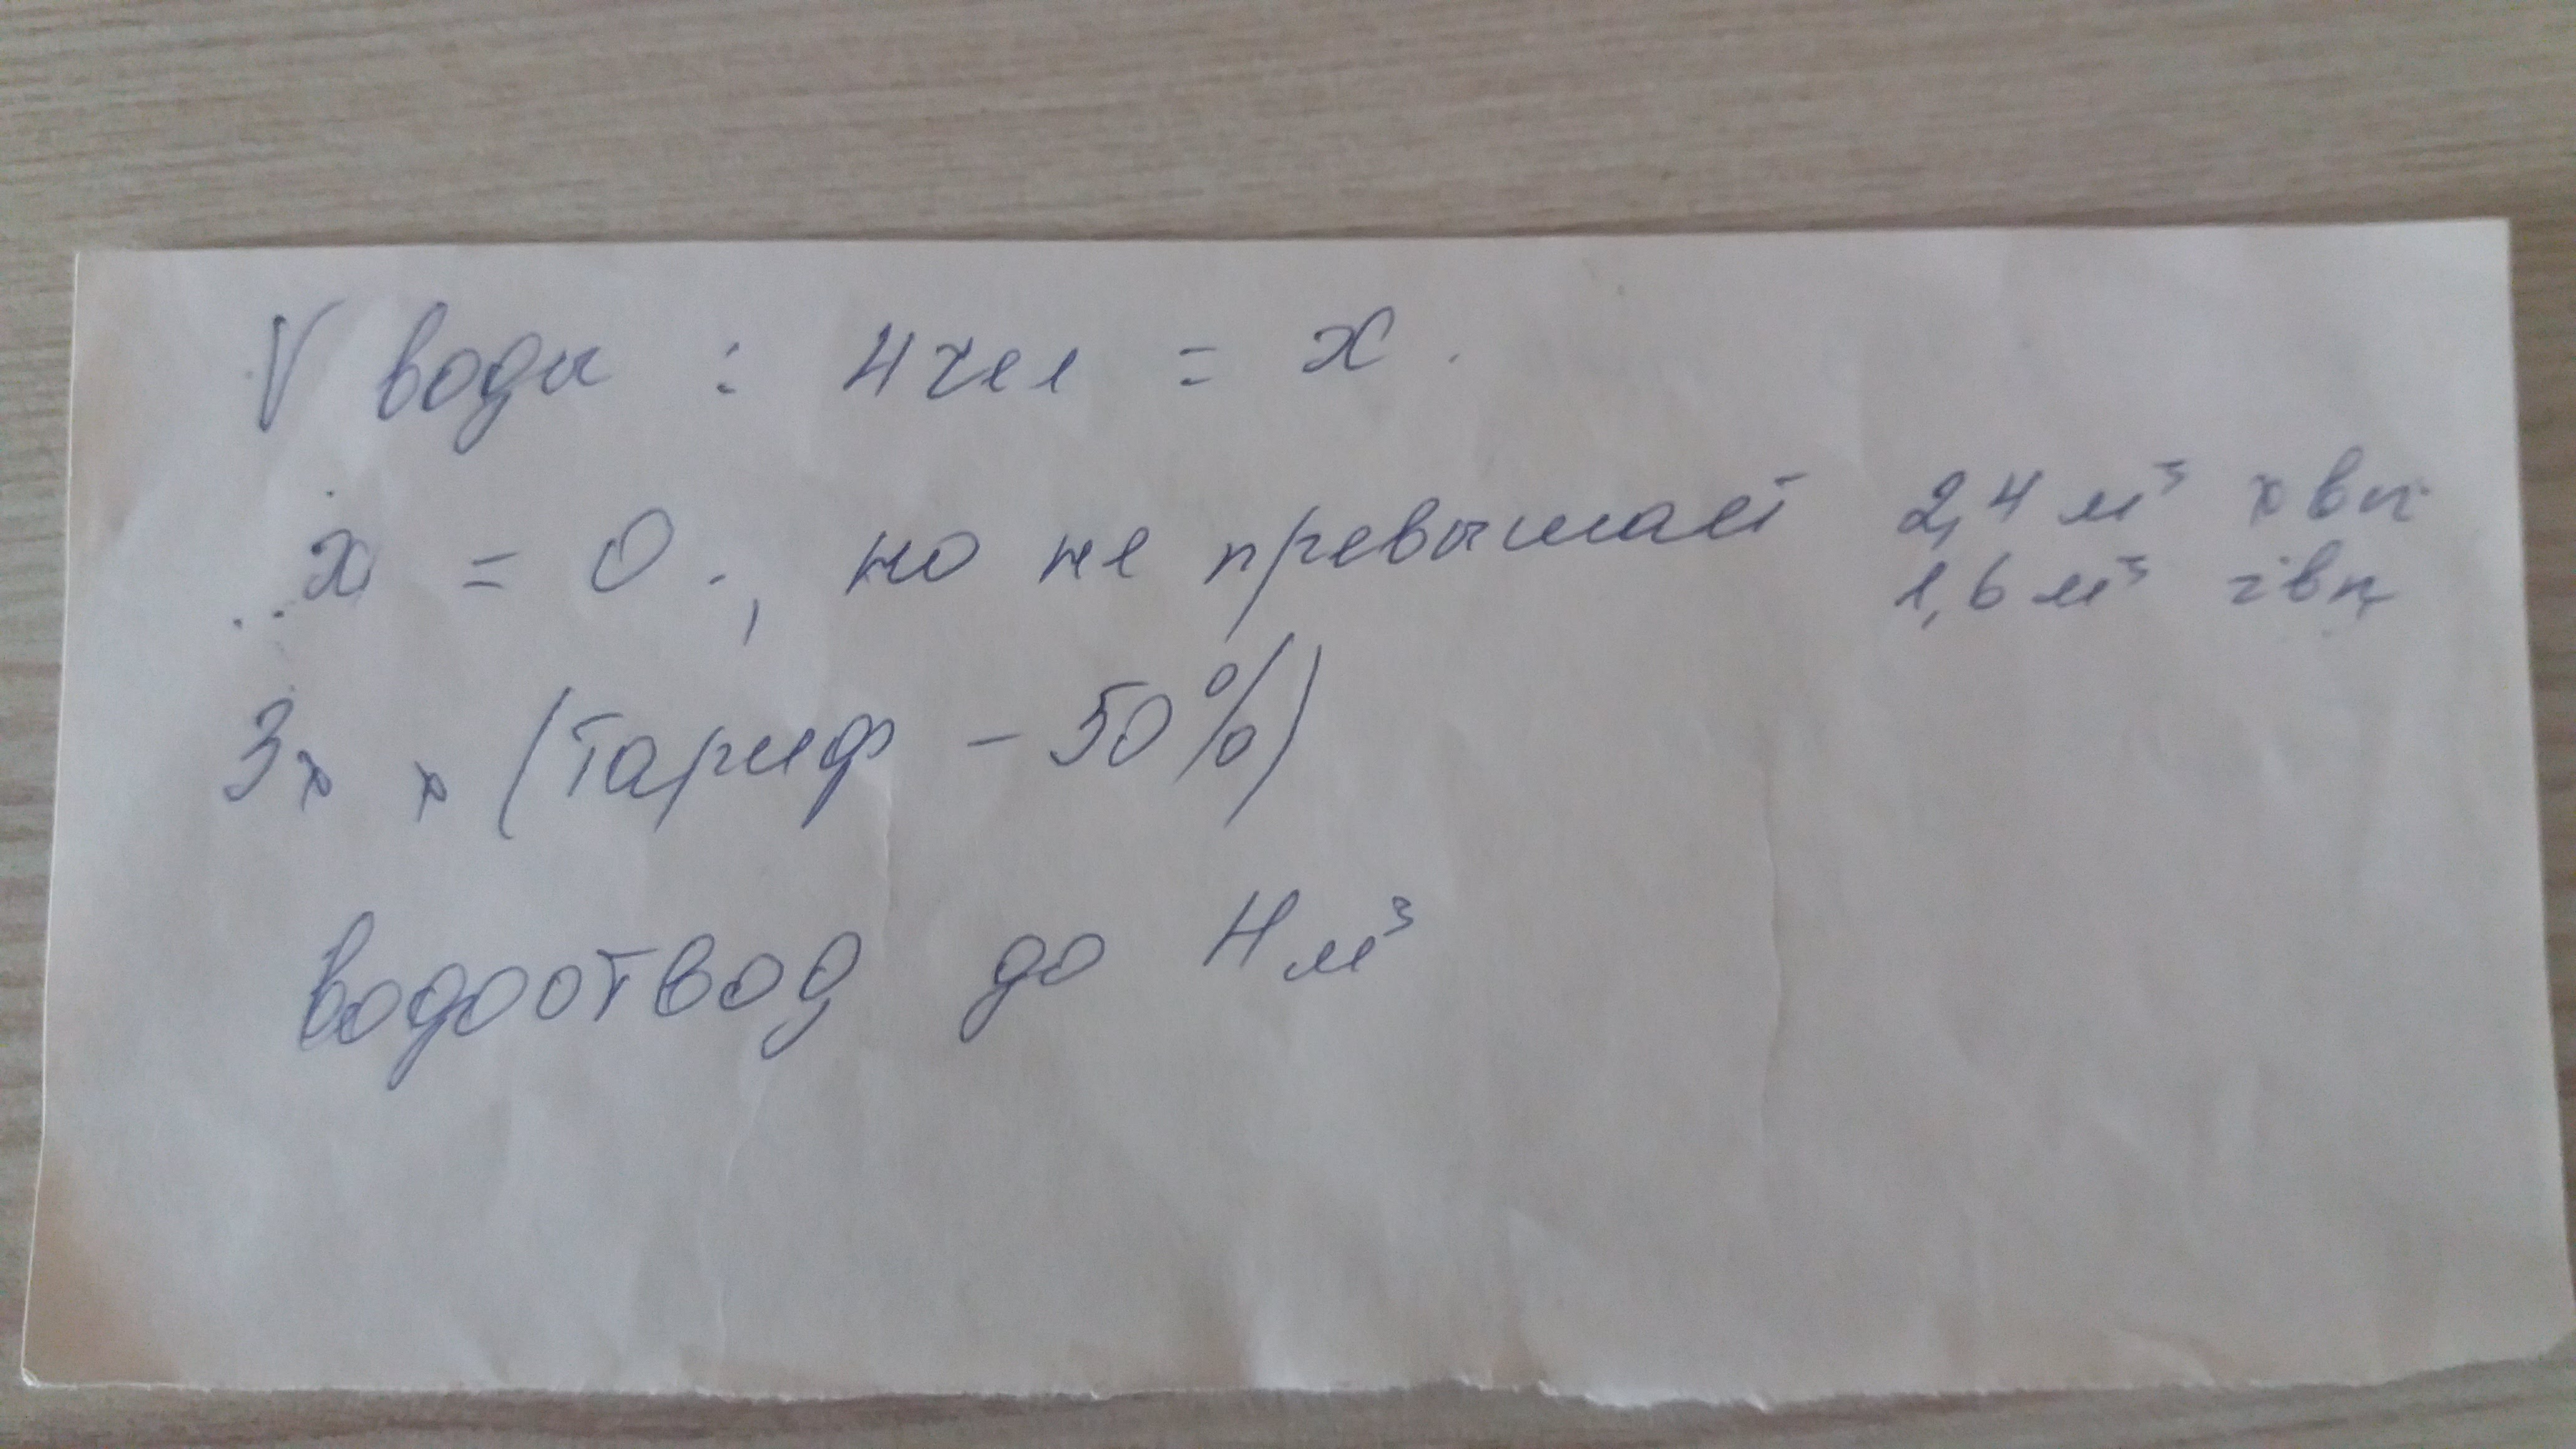 V воды : 4 чел = x.
x = 0 , но не превышает 2,4 м³ хвс
1,6 м³ гвс
3x x (тариф - 50%)
водоотвод до 4 м³